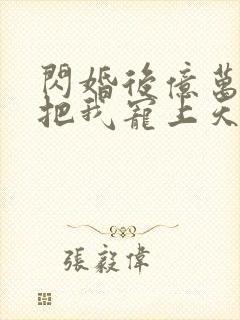 閃婚後億萬
把我寵上天
張毅偉